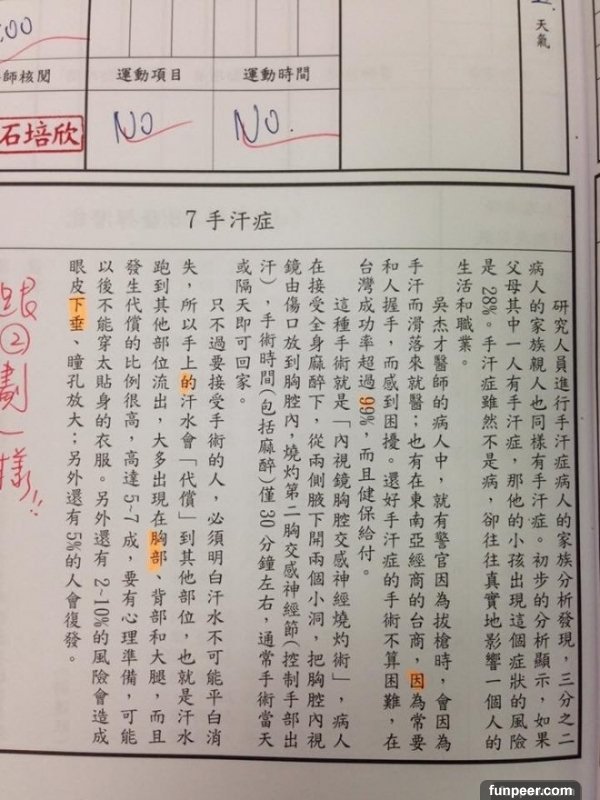 :00
天氣
師核閱
運動項目
運動時間
石培欣
NO
NO.
7 手汗症
研究人員進行手汗症病人的家族分析發現，三分之二
病人的家族親人也同樣有手汗症。初步的分析顯示，如果
父母其中一人有手汗症，那他的小孩出現這個症狀的風險
是 28%。手汗症雖然不是病，卻往往真實地影響一個人的
生活和職業。
吳杰才醫師的病人中，就有警官因為拔槍時，會因為
手汗而滑落來就醫；也有在東南亞經商的台商，因為常要
和人握手，而感到困擾。還好手汗症的手術不算困難，在
台灣成功率超過 99%，而且健保給付。
這種手術就是「內視鏡胸腔交感神經燒灼術」，病人
在接受全身麻醉下，從兩側腋下開兩個小洞，把胸腔內視
鏡由傷口放到胸腔內，燒灼第二胸交感神經節(控制手部出
汗)，手術時間(包括麻醉)僅 30 分鐘左右，通常手術當天
或隔天即可回家。
只不過要接受手術的人，必須明白汗水不可能平白消
失，所以手上的汗水會「代償」到其他部位，也就是汗水
跑到其他部位流出，大多出現在胸部、背部和大腿，而且
發生代償的比例很高，高達 5~7 成，要有心理準備，可能
以後不能穿太貼身的衣服。另外還有 2~10%的風險會造成
眼皮下垂、瞳孔放大；另外還有 5%的人會復發。
跟②劃一樣!!
funpeer.com